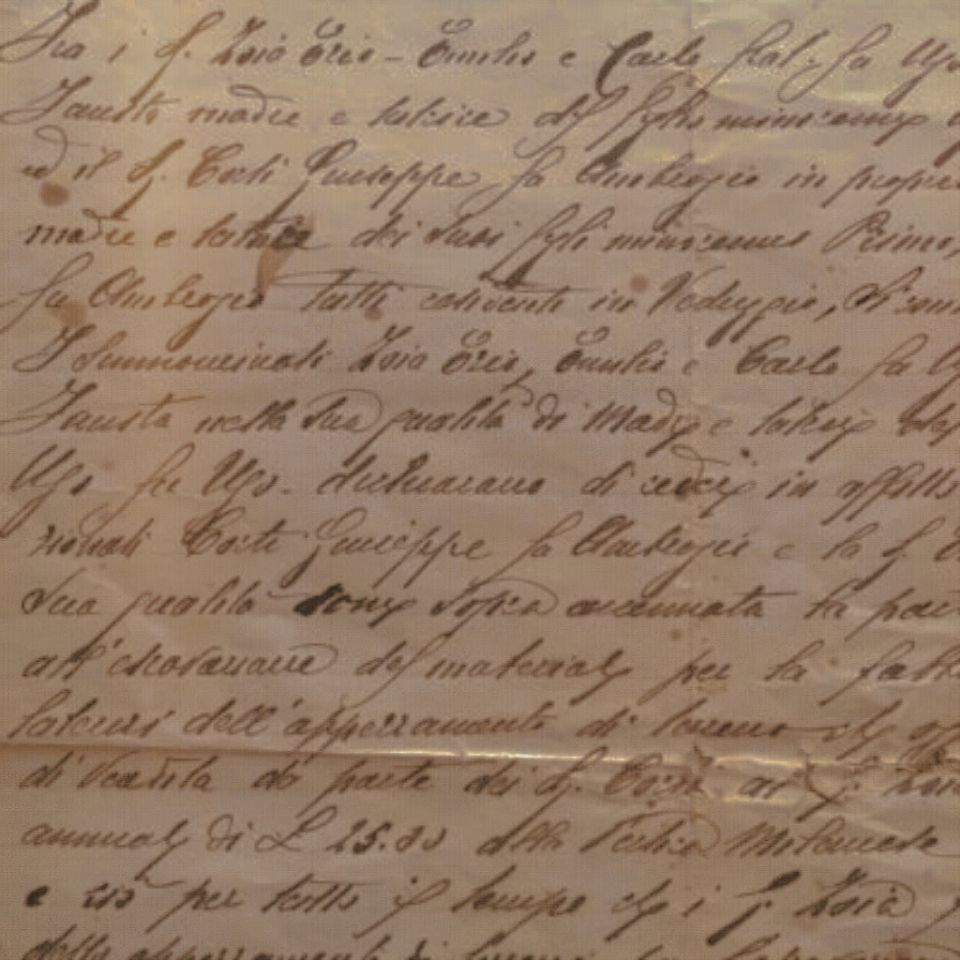 Tra i S. Zoia Erio - Emilio e Carlo frat. fu Ugo
Fausta madre e tutrice del figlio minorenne
ed il S. Corti Giuseppe fu Ambrogio in proprio
madre e tutrice dei suoi figli minorenni Primo,
fu Ambrogio tutti conventi in Vedeggio, si
I Summominati Zoia Erio, Emilio e Carlo fu
Fausta nella sua qualità di Madre e tutrice del
Ugo fu Ugo. dichiarano di cedere in affitto
zionati Corti Giuseppe fu Ambrogio e la S.
sua qualità come sopra accennata la parte
all'escavazione del materiale per la
laterizi dell'appezzamento di terreno che
di vendita da parte dei S. Corti ai S. Zoia
annuale di L 25.00 alla Pertica Milanese
e ciò per tutto il tempo che i S. Zoia
dello appezzamento di terreno